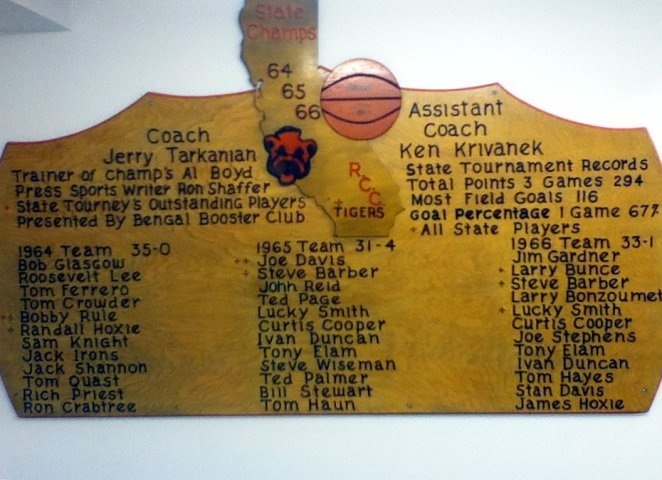 State
Champs
64
65
66
Coach
Jerry Tarkanian
Trainer of Champ's Al Boyd
Press Sports Writer Ron Shaffer
State Tourney's Outstanding Players
Presented By Bengal Booster Club
RCC
TIGERS
Assistant
Coach
Ken Krivanek
State Tournament Records
Total Points 3 Games 294
Most Field Goals 116
Goal Percentage 1 Game 67%
+ All State Players
1964 Team 35-0
Bob Glascow
Roosevelt Lee
Tom Ferrero
Tom Crowder
++ Bobby Rule
+ Randall Hoxie
Sam Knight
Jack Irons
Jack Shannon
Tom Quast
Rich Priest
Ron Crabtree
1965 Team 31-4
++ Joe Davis
+ Steve Barber
John Reid
Ted Page
Lucky Smith
Curtis Cooper
Ivan Duncan
Tony Elam
Steve Wiseman
Ted Palmer
Bill Stewart
Tom Haun
1966 Team 33-1
Jim Gardner
+ Larry Bunce
+ Steve Barber
Larry Bonzoumet
+ Lucky Smith
Curtis Cooper
Joe Stephens
Tony Elam
Ivan Duncan
Tom Hayes
Stan Davis
James Hoxie